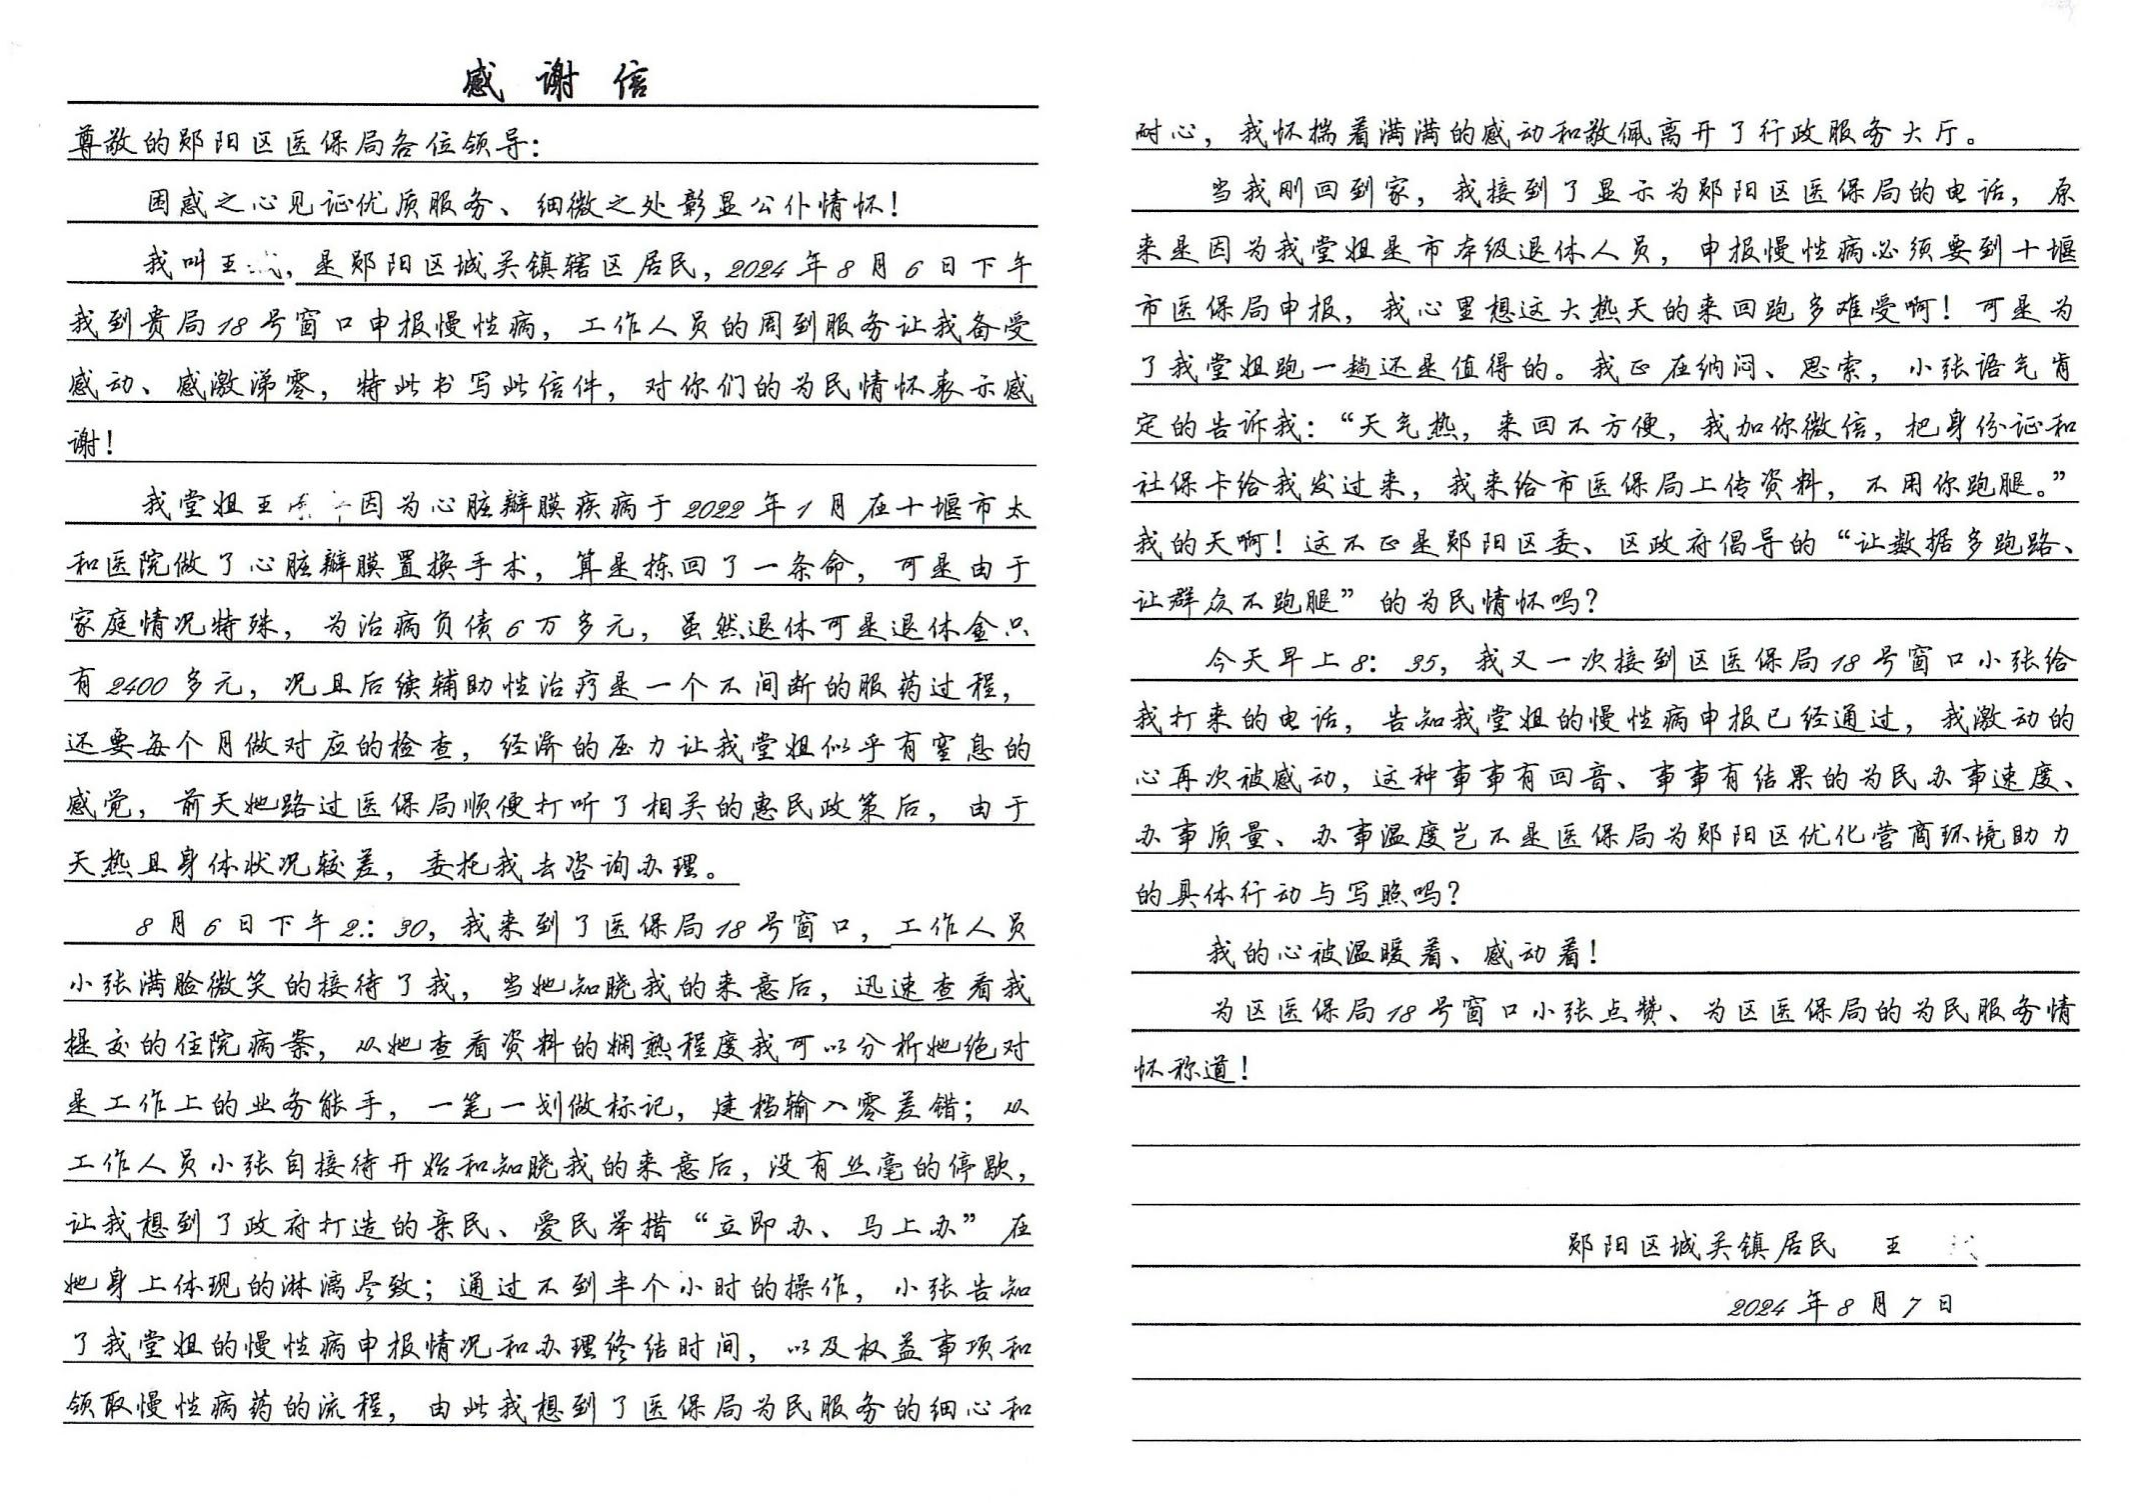 感谢信
尊敬的郧阳区医保局各位领导：
困惑之心见证优质服务、细微之处彰显公仆情怀！
我叫王，是郧阳区城关镇辖区居民，2024年8月6日下午
我到贵局18号窗口申报慢性病，工作人员的周到服务让我备受
感动、感激涕零，特此书写此信件，对你们的为民情怀表示感
谢！
我堂姐王因为心脏瓣膜疾病于2022年1月在十堰市太
和医院做了心脏瓣膜置换手术，算是拣回了一条命，可是由于
家庭情况特殊，为治病负债6万多元，虽然退休可是退休金只
有2400多元，况且后续辅助性治疗是一个不间断的服药过程，
还要每个月做对应的检查，经济的压力让我堂姐似乎有窒息的
感觉，前天她路过医保局顺便打听了相关的惠民政策后，由于
天热且身体状况较差，委托我去咨询办理。
8月6日下午2：30，我来到了医保局18号窗口，工作人员
小张满脸微笑的接待了我，当她知晓我的来意后，迅速查看我
提交的住院病案，从她查看资料的娴熟程度我可以分析她绝对
是工作上的业务能手，一笔一划做标记，建档输入零差错；从
工作人员小张自接待开始和知晓我的来意后，没有丝毫的停歇，
让我想到了政府打造的亲民、爱民举措“立即办、马上办”在
她身上体现的淋漓尽致；通过不到半个小时的操作，小张告知
了我堂姐的慢性病申报情况和办理终结时间，以及权益事项和
领取慢性病药的流程，由此我想到了医保局为民服务的细心和
耐心，我怀揣着满满的感动和敬佩离开了行政服务大厅。
当我刚回到家，我接到了显示为郧阳区医保局的电话，原
来是因为我堂姐是市本级退休人员，申报慢性病必须要到十堰
市医保局申报，我心里想这大热天的来回跑多难受啊！可是为
了我堂姐跑一趟还是值得的。我正在纳闷、思索，小张语气肯
定的告诉我：“天气热，来回不方便，我加你微信，把身份证和
社保卡给我发过来，我来给市医保局上传资料，不用你跑腿。”
我的天啊！这不正是郧阳区委、区政府倡导的“让数据多跑路、
让群众不跑腿”的为民情怀吗？
今天早上8：35，我又一次接到区医保局18号窗口小张给
我打来的电话，告知我堂姐的慢性病申报已经通过，我激动的
心再次被感动，这种事事有回音、事事有结果的为民办事速度、
办事质量、办事温度岂不是医保局为郧阳区优化营商环境助力
的具体行动与写照吗？
我的心被温暖着、感动着！
为区医保局18号窗口小张点赞、为区医保局的为民服务情
怀称道！
郧阳区城关镇居民 王
2024年8月7日